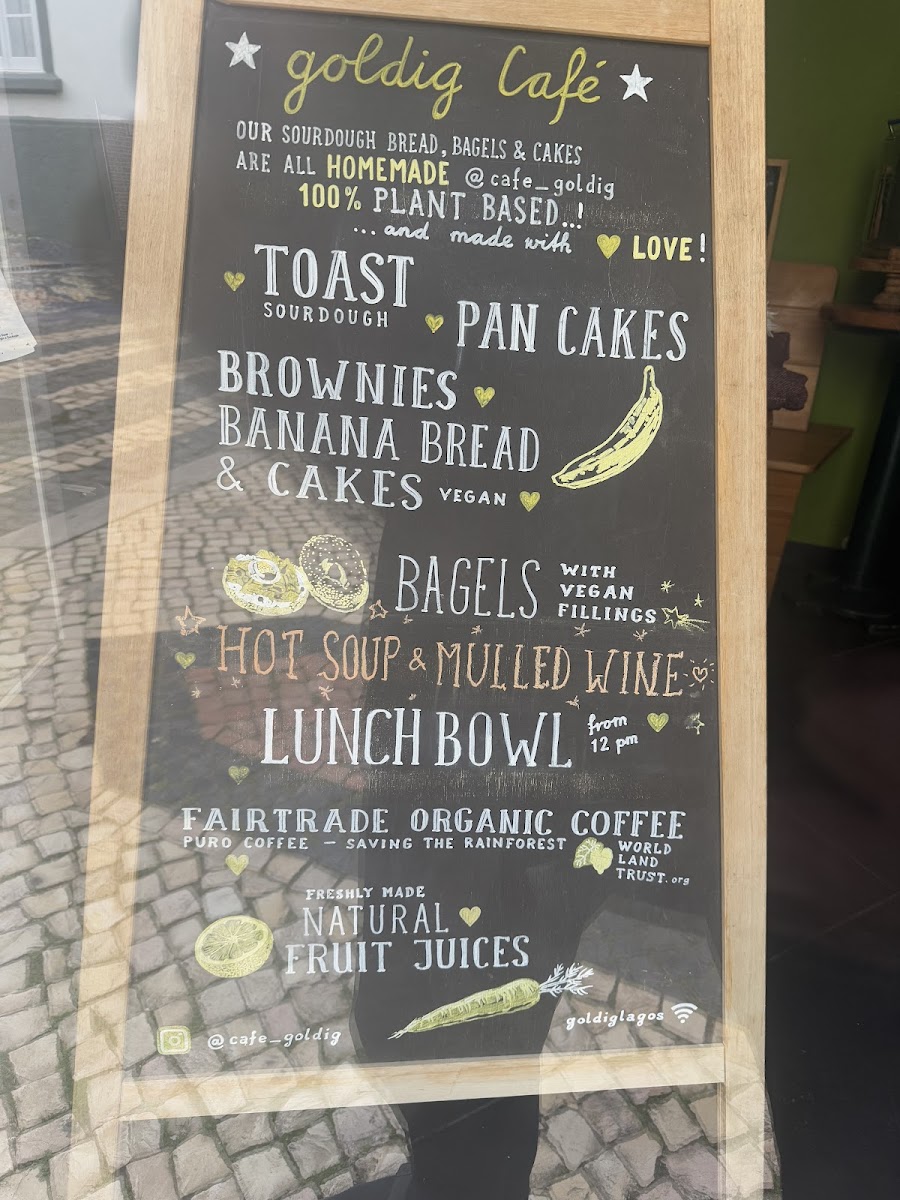 goldig Café
OUR SOURDOUGH BREAD, BAGELS & CAKES
ARE ALL HOMEMADE @cafe_goldig
100% PLANT BASED...!
... and made with LOVE!
TOAST
SOURDOUGH
PAN CAKES
BROWNIES
BANANA BREAD
& CAKES VEGAN
BAGELS
WITH
VEGAN
FILLINGS
HOT SOUP & MULLED WINE
LUNCH BOWL
from
12 pm
FAIRTRADE ORGANIC COFFEE
PURO COFFEE – SAVING THE RAINFOREST
WORLD
LAND
TRUST.org
FRESHLY MADE
NATURAL
FRUIT JUICES
goldiglagos
@cafe_goldig